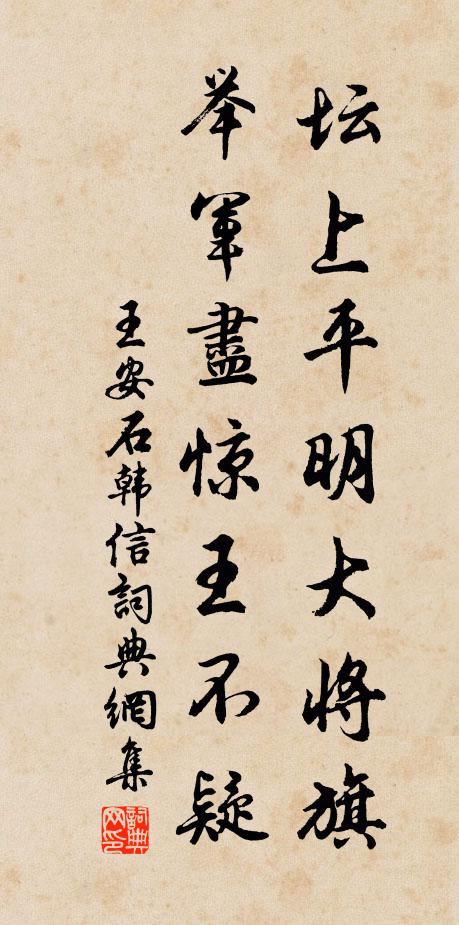 坛上平明大将旗
举军盡惊王不疑
王安石韩信詞典網集
詞典网印